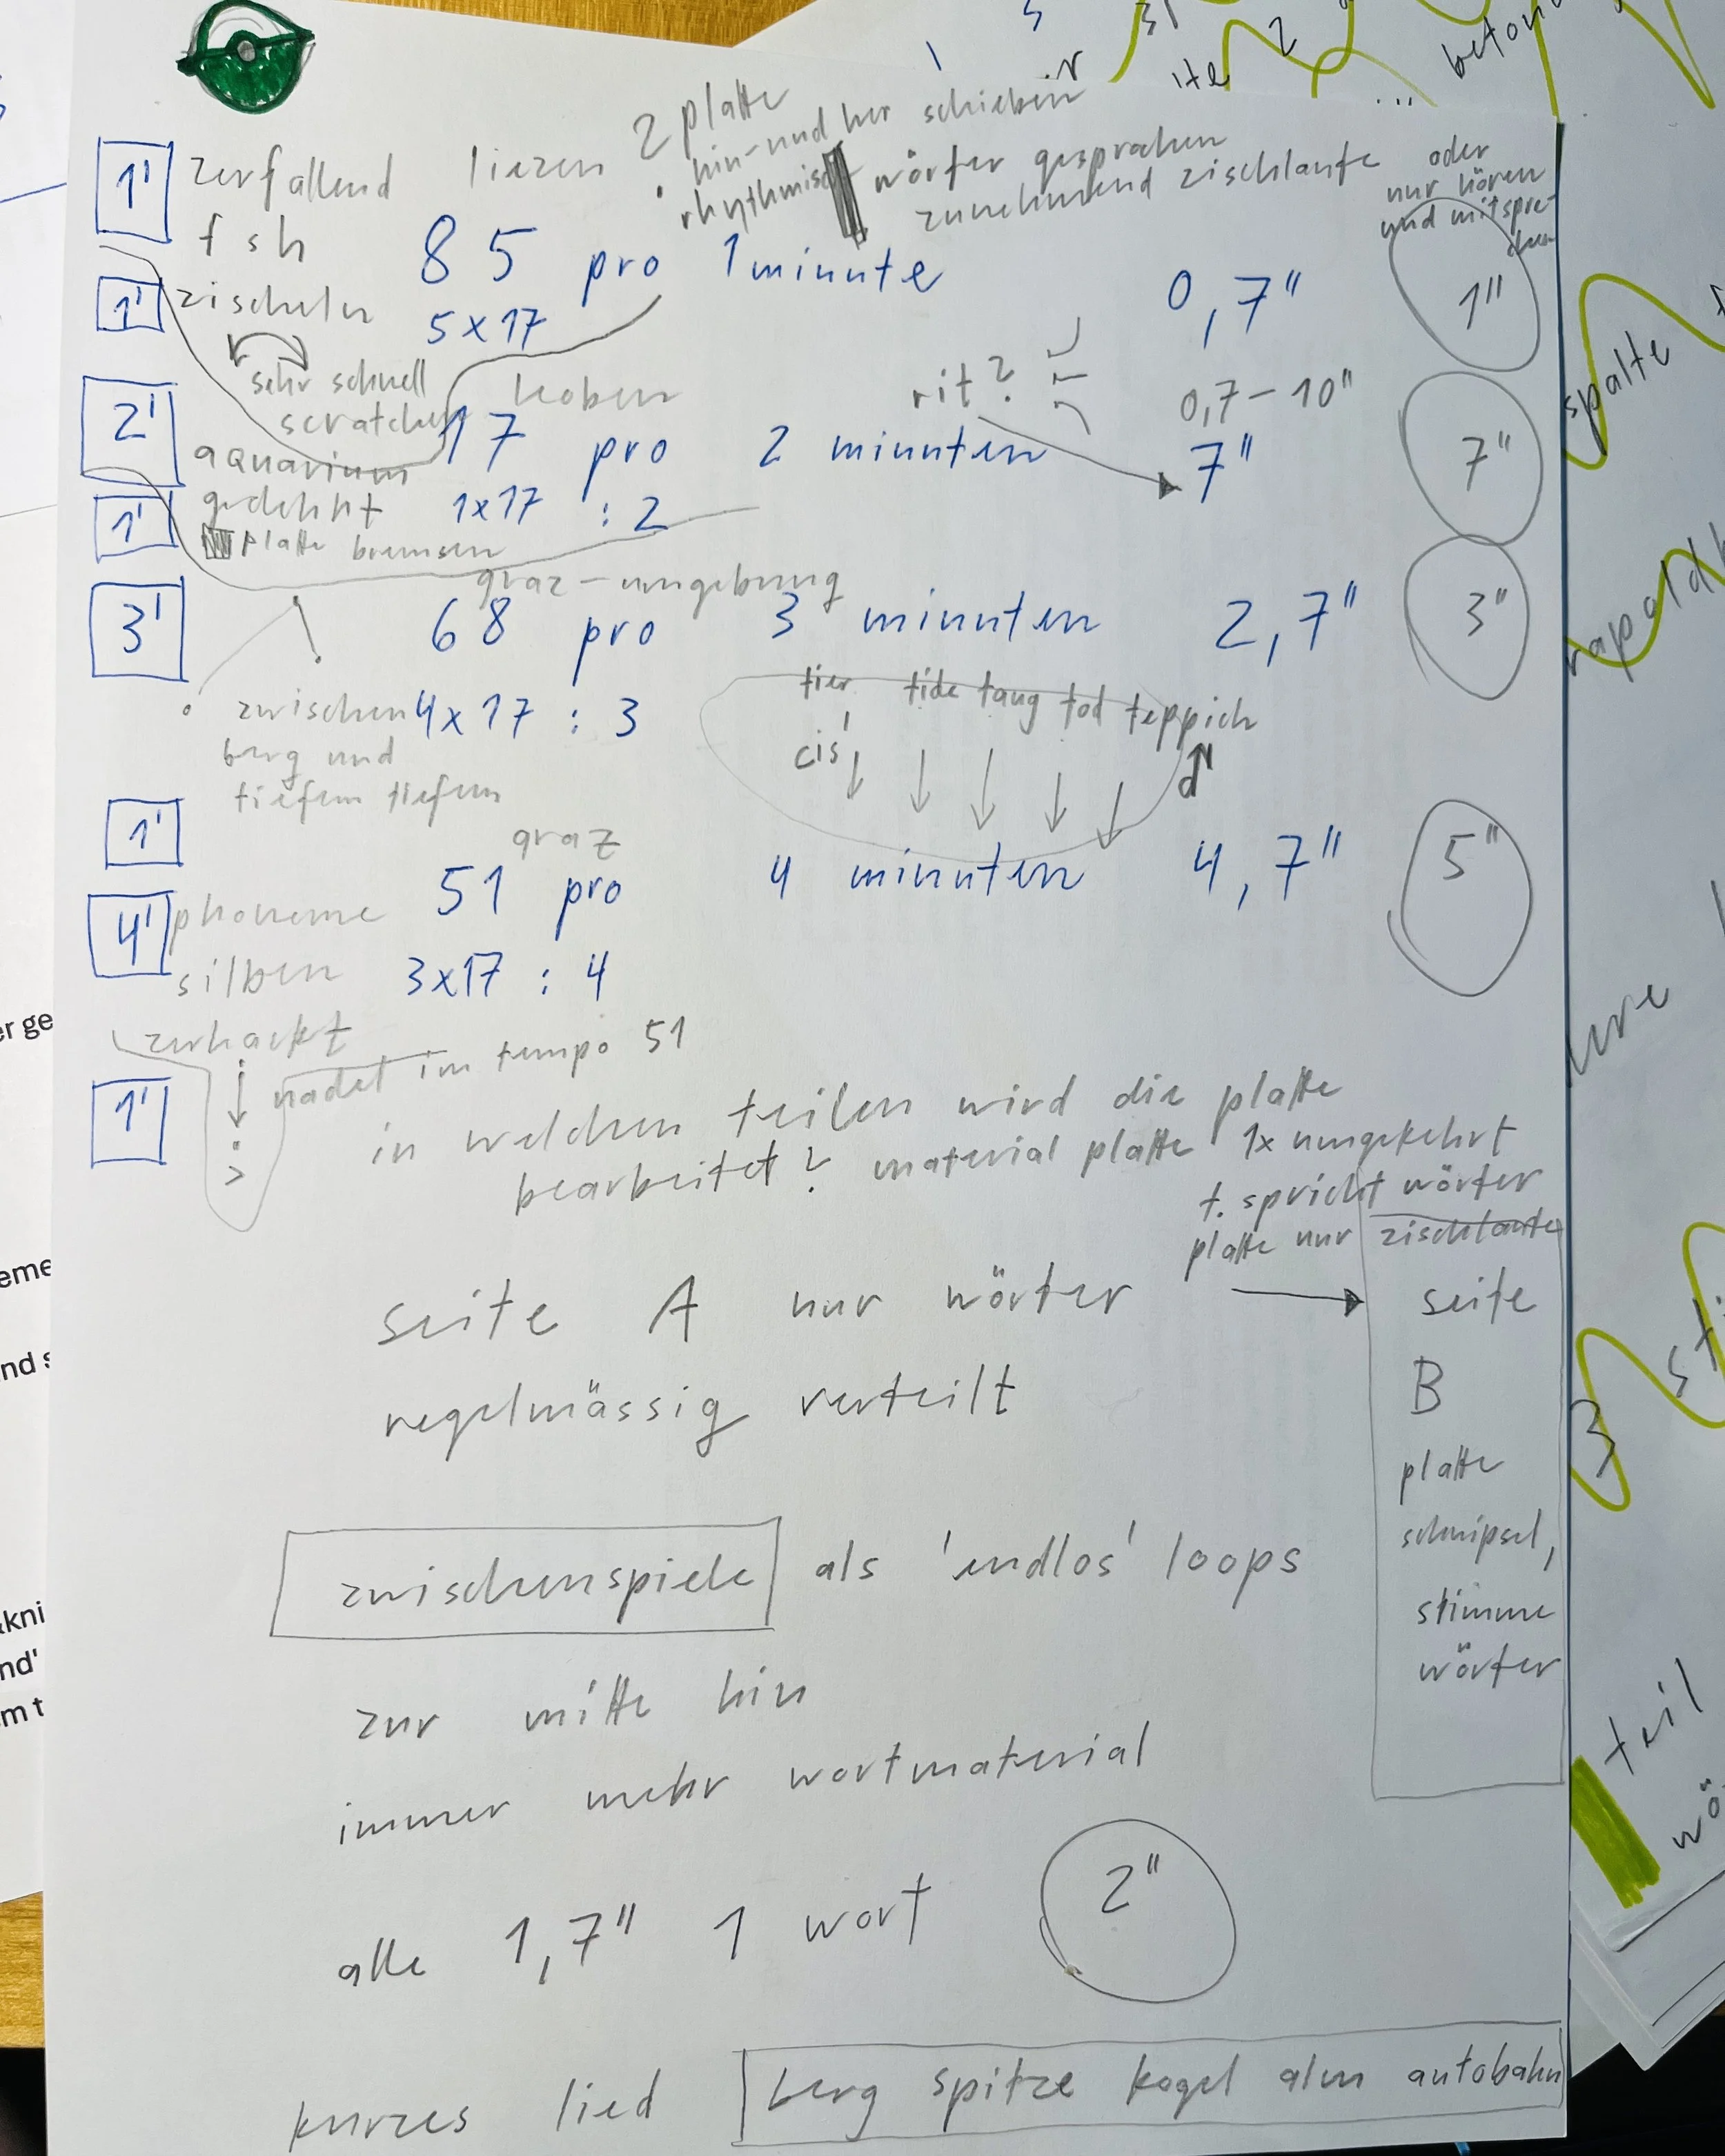 2 platte
hin- und her schieben
1' zerfallend liezen rhythmisch wörter gesprochen
zunehmend zischlaute
oder
nur hören
und mitspre-
chen
f sh 85 pro 1 minute 0,7" 1"
1' zischeln 5x17
sehr schnell
scratchen
koben rit? 0,7-10"
2' 17 pro 2 minuten 7" 7"
aquarium
gedehnt 1x17 : 2
1' platte bremsen
graz-umgebung
3' 68 pro 3 minuten 2,7" 3"
tier tide tang tod teppich
zwischen 4x17 : 3
cis'
berg und
tiefem tiefem
1' graz
51 pro 4 minuten 4,7" 5"
4' phoneme
silben 3x17 : 4
zerhackt
nadel im tempo 51
1' in welchen teilen wird die platte
bearbeitet? material platte 1x umgekehrt
t. spricht wörter
platte nur zischlaute
seite A nur wörter
regelmässig verteilt
seite
B
platte
schnipsel,
stimme
wörter
zwischenspiele als 'endlos' loops
zur mitte hin
immer mehr wortmaterial
alle 1,7" 1 wort 2"
kurzes lied berg spitze kogel alm autobahn
spalte
3
teil
wö
er ge
eme
nd s
kni
nd'
m t